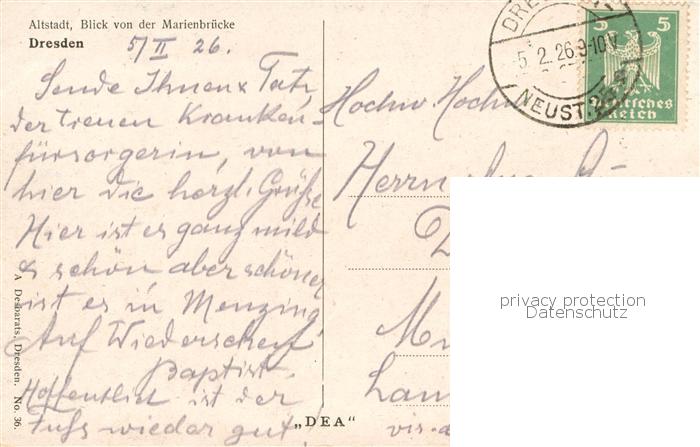 Altstadt, Blick von der Marienbrücke
Dresden
5/II 26.
Sende Ihnen & Tatz,
der treuen Kranken-
fürsorgerin, von
hier die herzl. Grüße
Hier ist es ganz mild
& schön aber schöner
ist es in Menzing
Auf Wiedersehen
Baptist.
Hoffentlich ist der
Fuß wieder gut!
A. Desbarats, Dresden. No. 36.
„DEA"
5. 2. 26. 9-10 V.
NEUST.
5 5
Deutsches
Reich
Hochw Hochw
Herrn
vis-a
privacy protection
Datenschutz